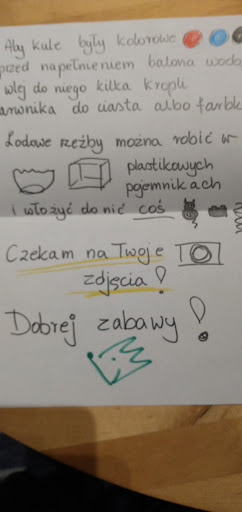 Aby kule były kolorowe
przed napełnieniem balona wodą
wlej do niego kilka kropli
barwnika do ciasta albo farbki
Lodowe rzeźby można robić w
plastikowych
pojemnikach
i włożyć do nić coś
Czekam na Twoje
zdjęcia!
Dobrej zabawy!